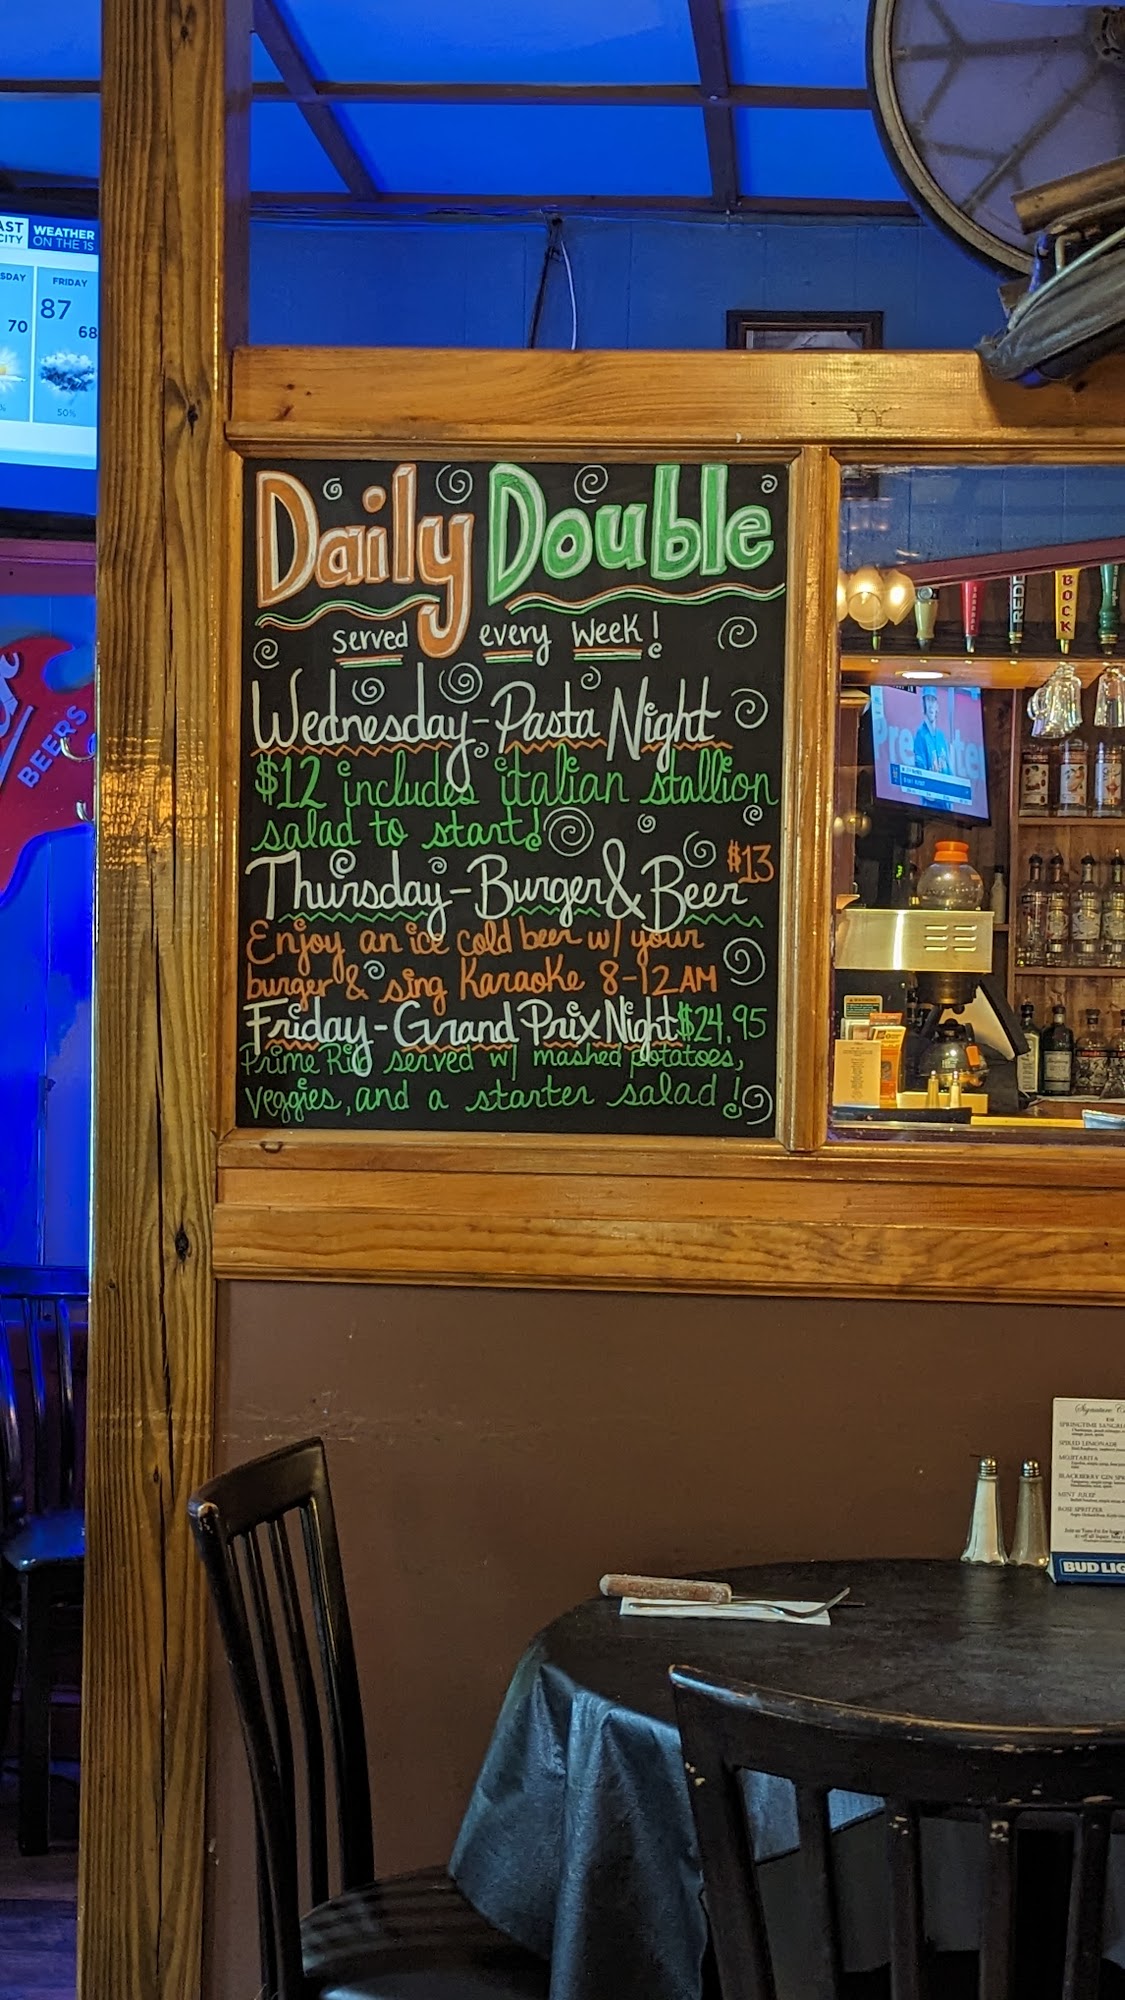 AST
CITY
WEATHER
ON THE 1S
SDAY
FRIDAY
87
70
68
50%
BEERS
Daily Double
served every week!
Wednesday-Pasta Night
$12 includes italian stallion
salad to start!
Thursday-Burger&Beer $13
Enjoy an ice cold beer w/ your
burger & sing Karaoke 8-12AM
Friday-Grand Prix Night $24.95
Prime Rib served w/ mashed potatoes,
veggies, and a starter salad!
RED
BOCK
Signature C
SPRINGTIME SANGRI
SPIKED LEMONADE
MOJITARITA
BLACKBERRY GIN SP
MINT JULEP
ROSE SPRITZER
BUD LIG